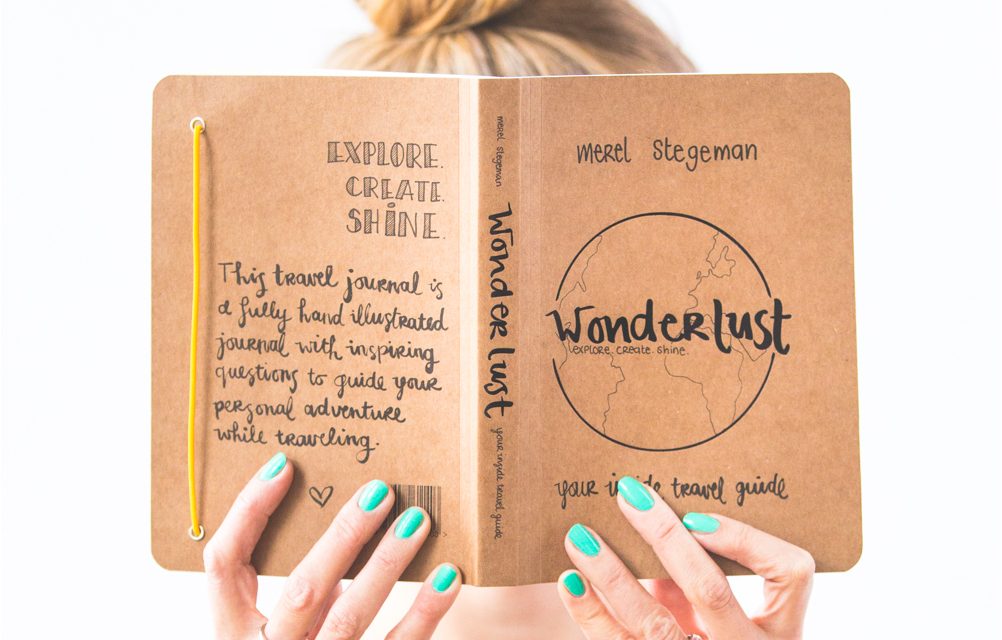 EXPLORE.
CREATE.
SHINE.
This travel journal is
a fully hand illustrated
journal with inspiring
questions to guide your
personal adventure
while traveling.
merel stegeman
Wonderlust
your inside travel guide
merel stegeman
Wonderlust
explore. create. shine.
your inside travel guide